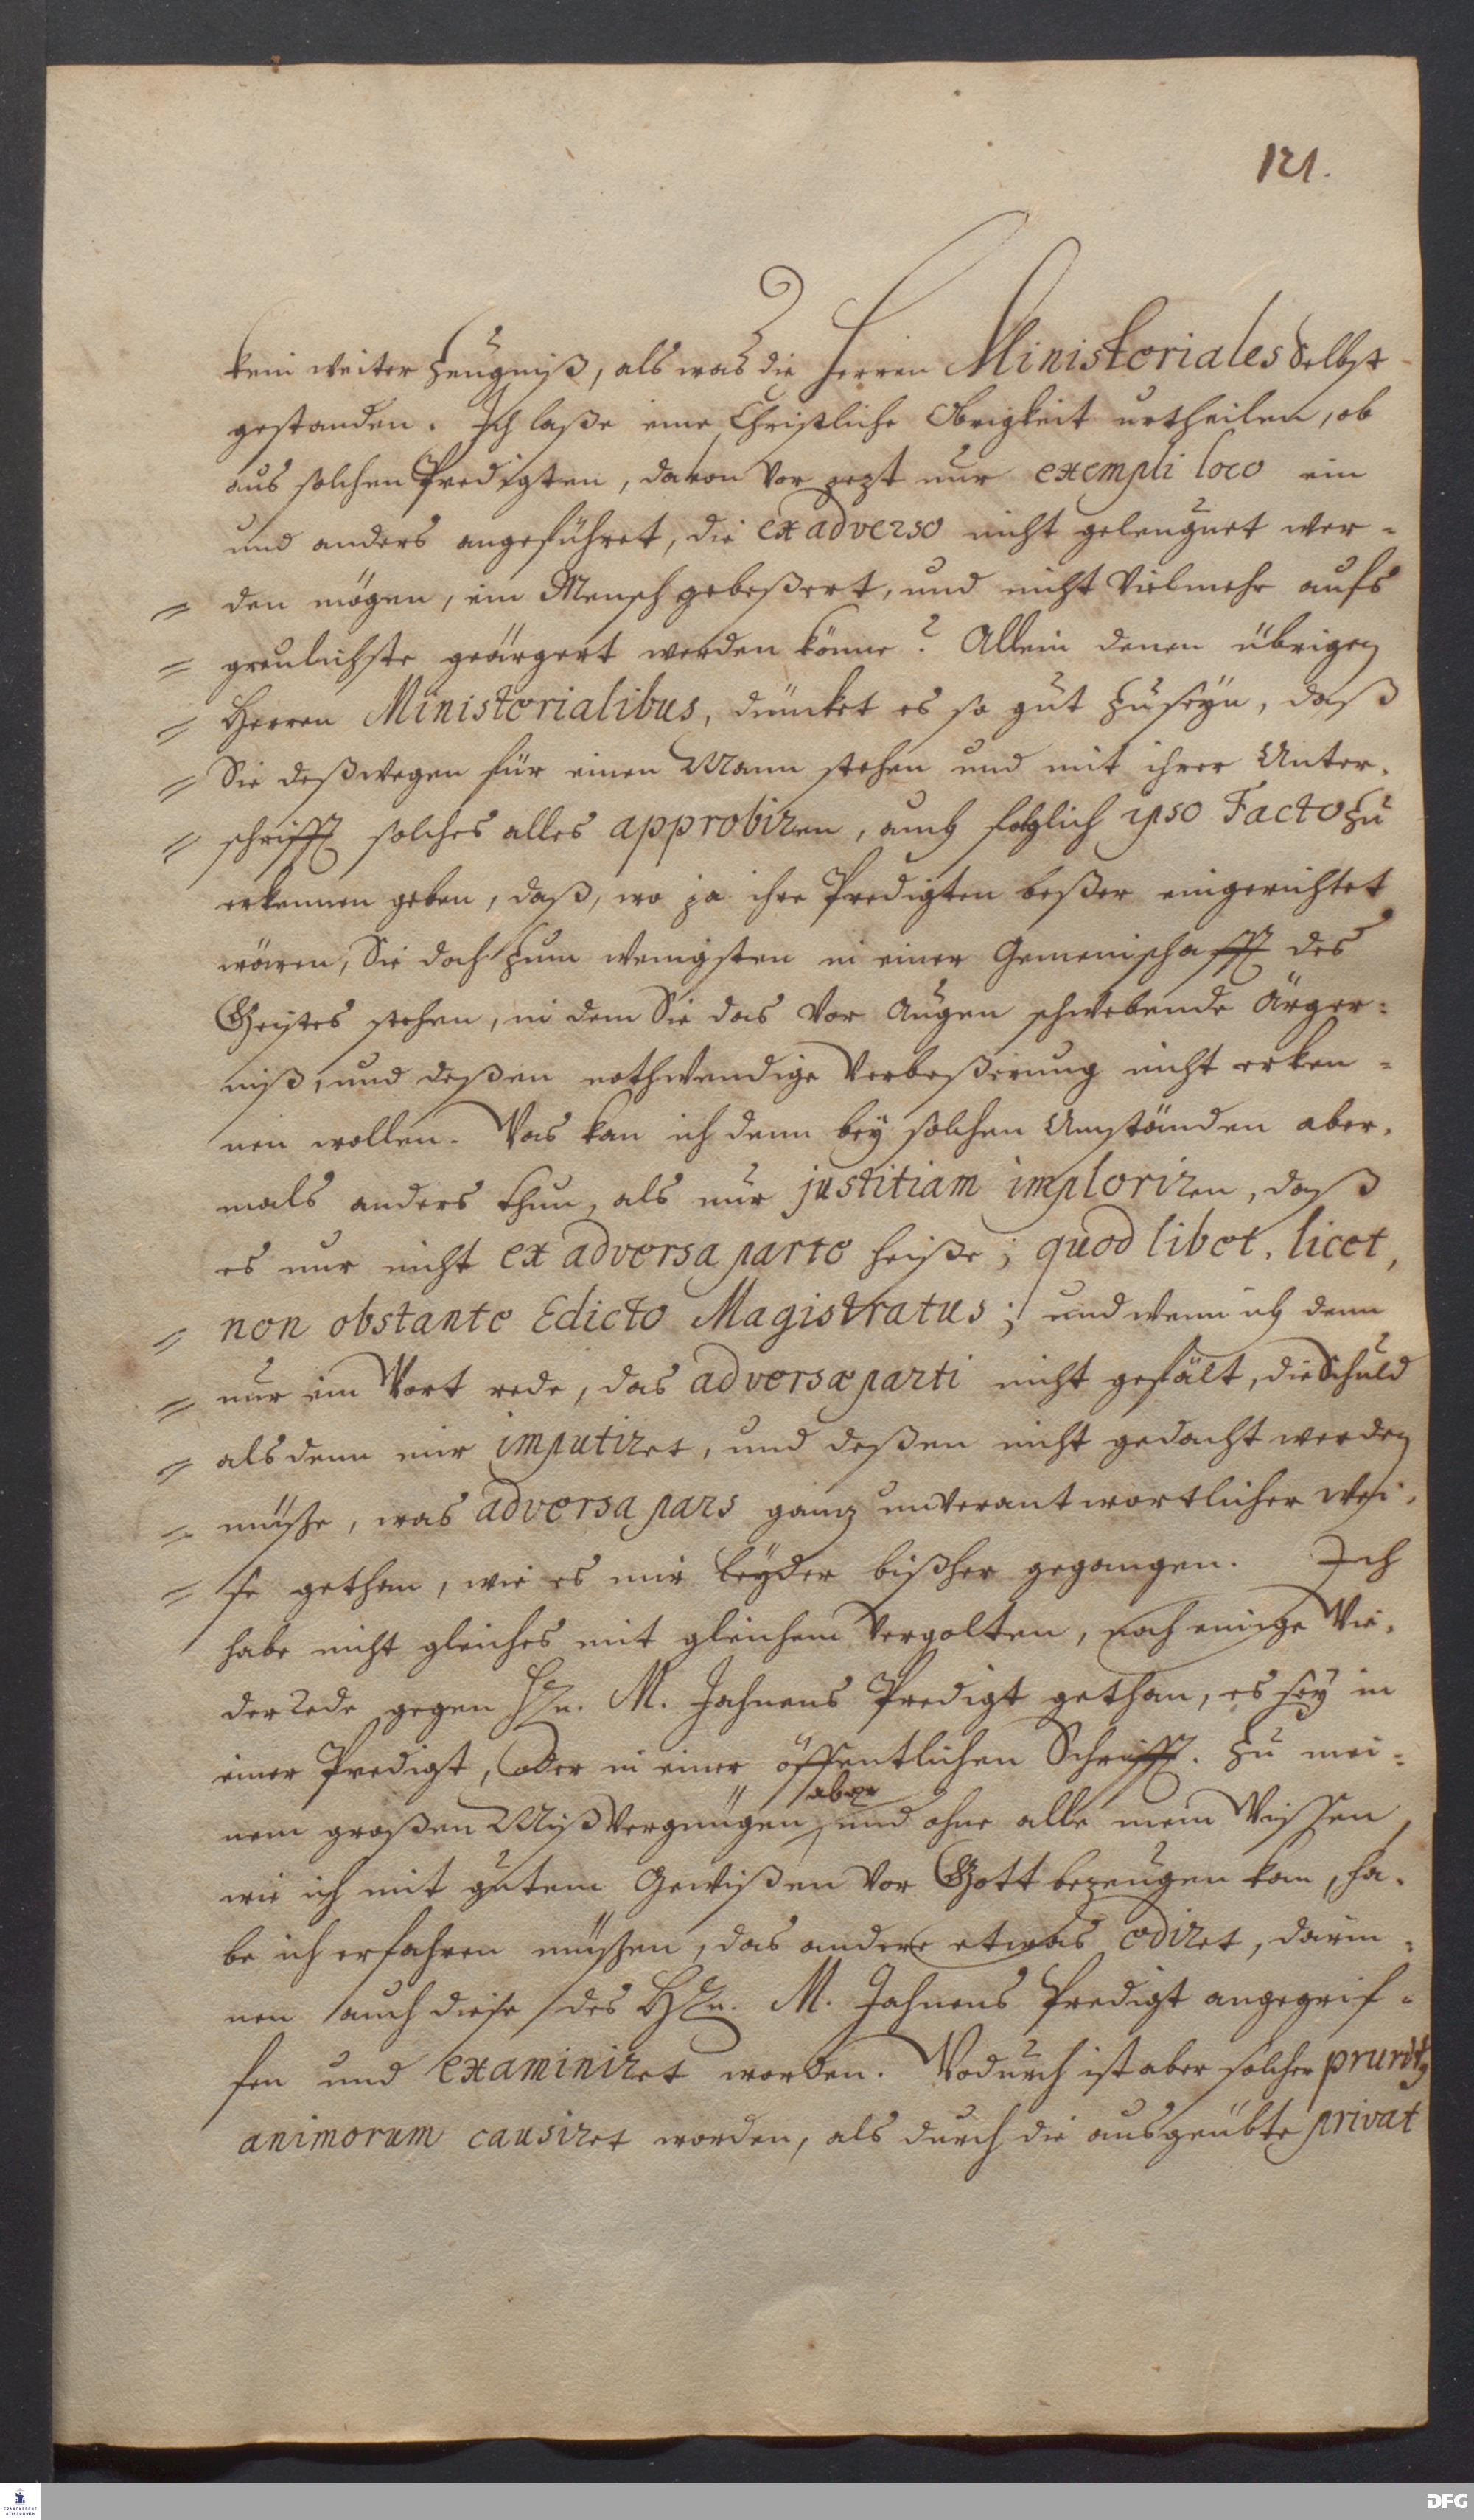 121.
kein weiter Zeugniß, als was die Herren Ministeriales selbst
gestanden. Ich laße eine Christliche Obrigkeit urtheilen, ob
aus solchen Predigten, davon vor jezt nur exempli loco ein
und anders angeführet, die ex adverso nicht geleugnet wer-
den mögen, ein Mensch gebeßert, und nicht vielmehr aufs
greulichste geärgert werden könne? Allein denen übrigen
Herren Ministerialibus, düncket es so gut zu seyn, daß
Sie deßwegen für einen Mann stehen und mit ihrer Unter-
schrifft solches alles approbiren, auch folglich ipso Facto zu
erkennen geben, daß, wo ja ihre Predigten beßer eingerichtet
wären, Sie doch zum wenigsten in einer Gemeinschafft des
Geistes stehen, in dem Sie das vor Augen schwebende Ärger-
niß, und deßen nothwendige Verbeßerung nicht erken-
nen wollen. Was kan ich denn bey solchen Umständen aber-
mals anders thun, als nur justitiam imploriren, daß
es nur nicht ex adversa parte heiße; quod libet, licet,
non obstante Edicto Magistratus; und wenn ich denn
nur ein Wort rede, das adversæ parti nicht gefält, die Schuld
als denn mir imputiret, und deßen nicht gedacht werden
müße, was adversa pars ganz unverantwortlicher Wei-
se gethan, wie es mir leyder bißher gegangen. Ich
habe nicht gleiches mit gleichem vergolten, noch einige Wie-
derrede gegen Hrn. M. Jahnens Predigt gethan, es sey in
einer Predigt, oder in einer öffentlichen Schrifft. Zu mei-
aber
nem großen Mißvergnügen, und ohne alle mein Wissen,
wie ich mit gutem Gewißen vor Gott bezeugen kan, ha-
be ich erfahren müßen, das andere etwas ediret, darin-
nen auch diese des Hrn. M. Jahnens Predigt angegrif-
fen und examiniret worden. Wodurch ist aber solcher pruritus
animorum causiret worden, als durch die ausgeübte privat
FRANCKESCHE STIFTUNGEN
DFG